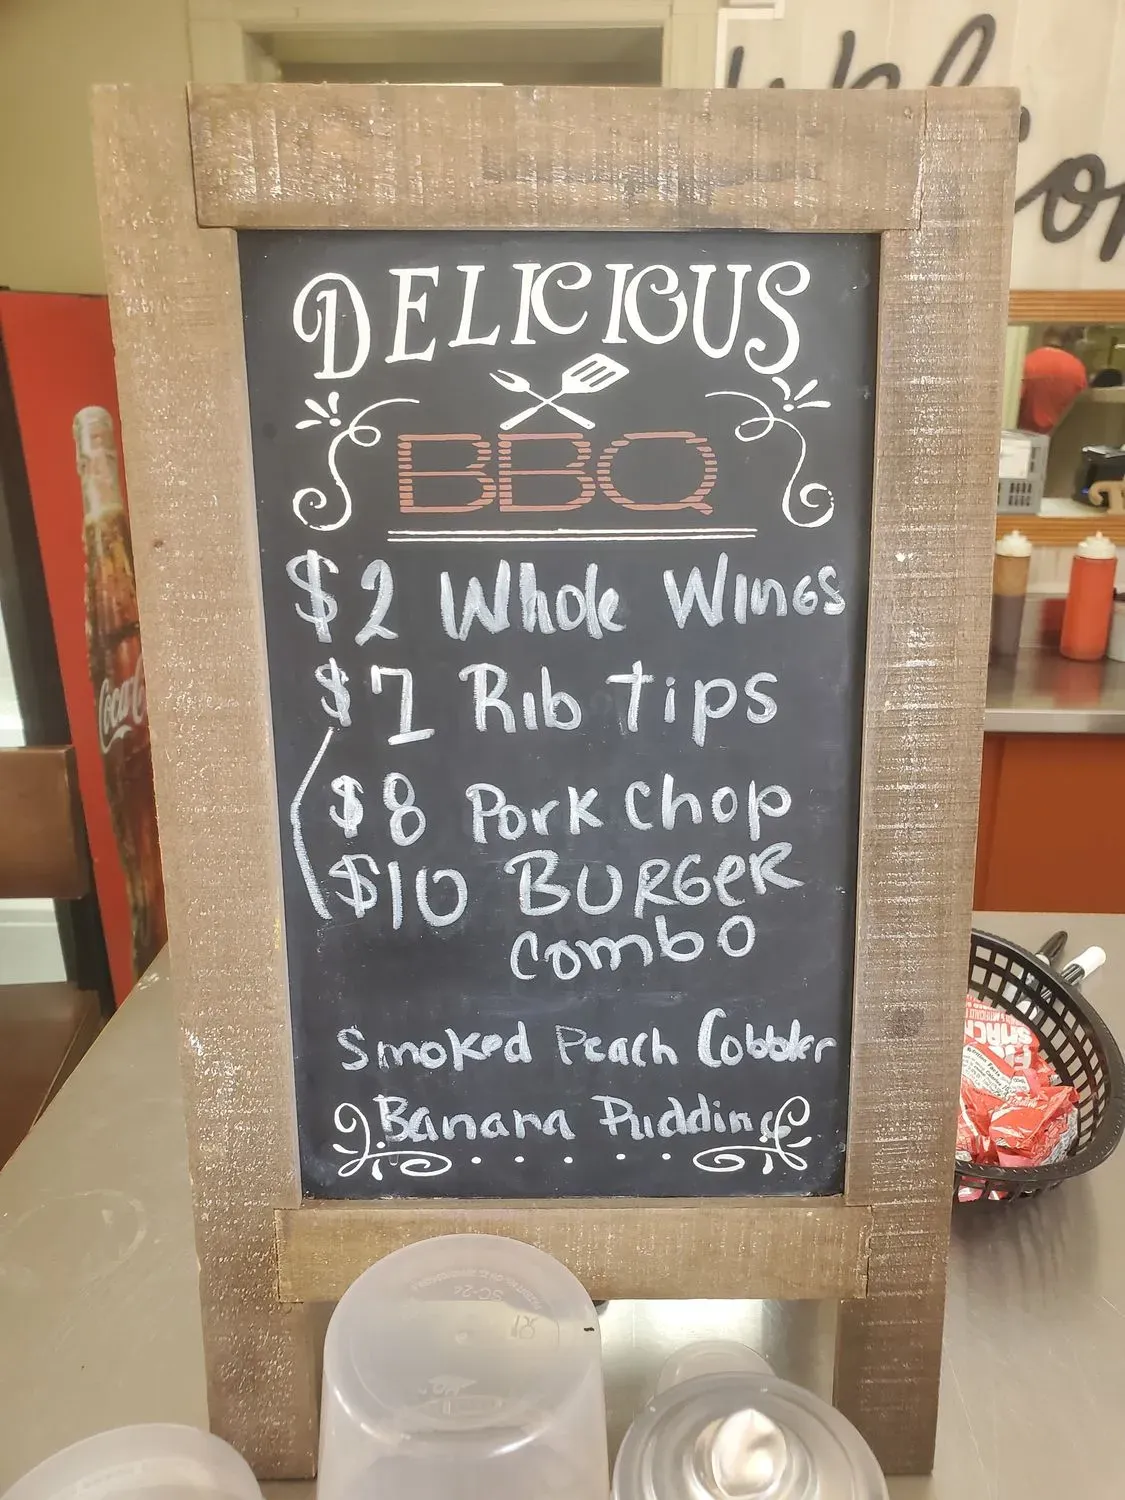 DELICIOUS
BBQ
$2 Whole Wings
$7 Rib tips
$8 Pork chop
$10 BURGER
combo
Smoked Peach Cobbler
Banana Pudding
Coca-Cola
SC-24